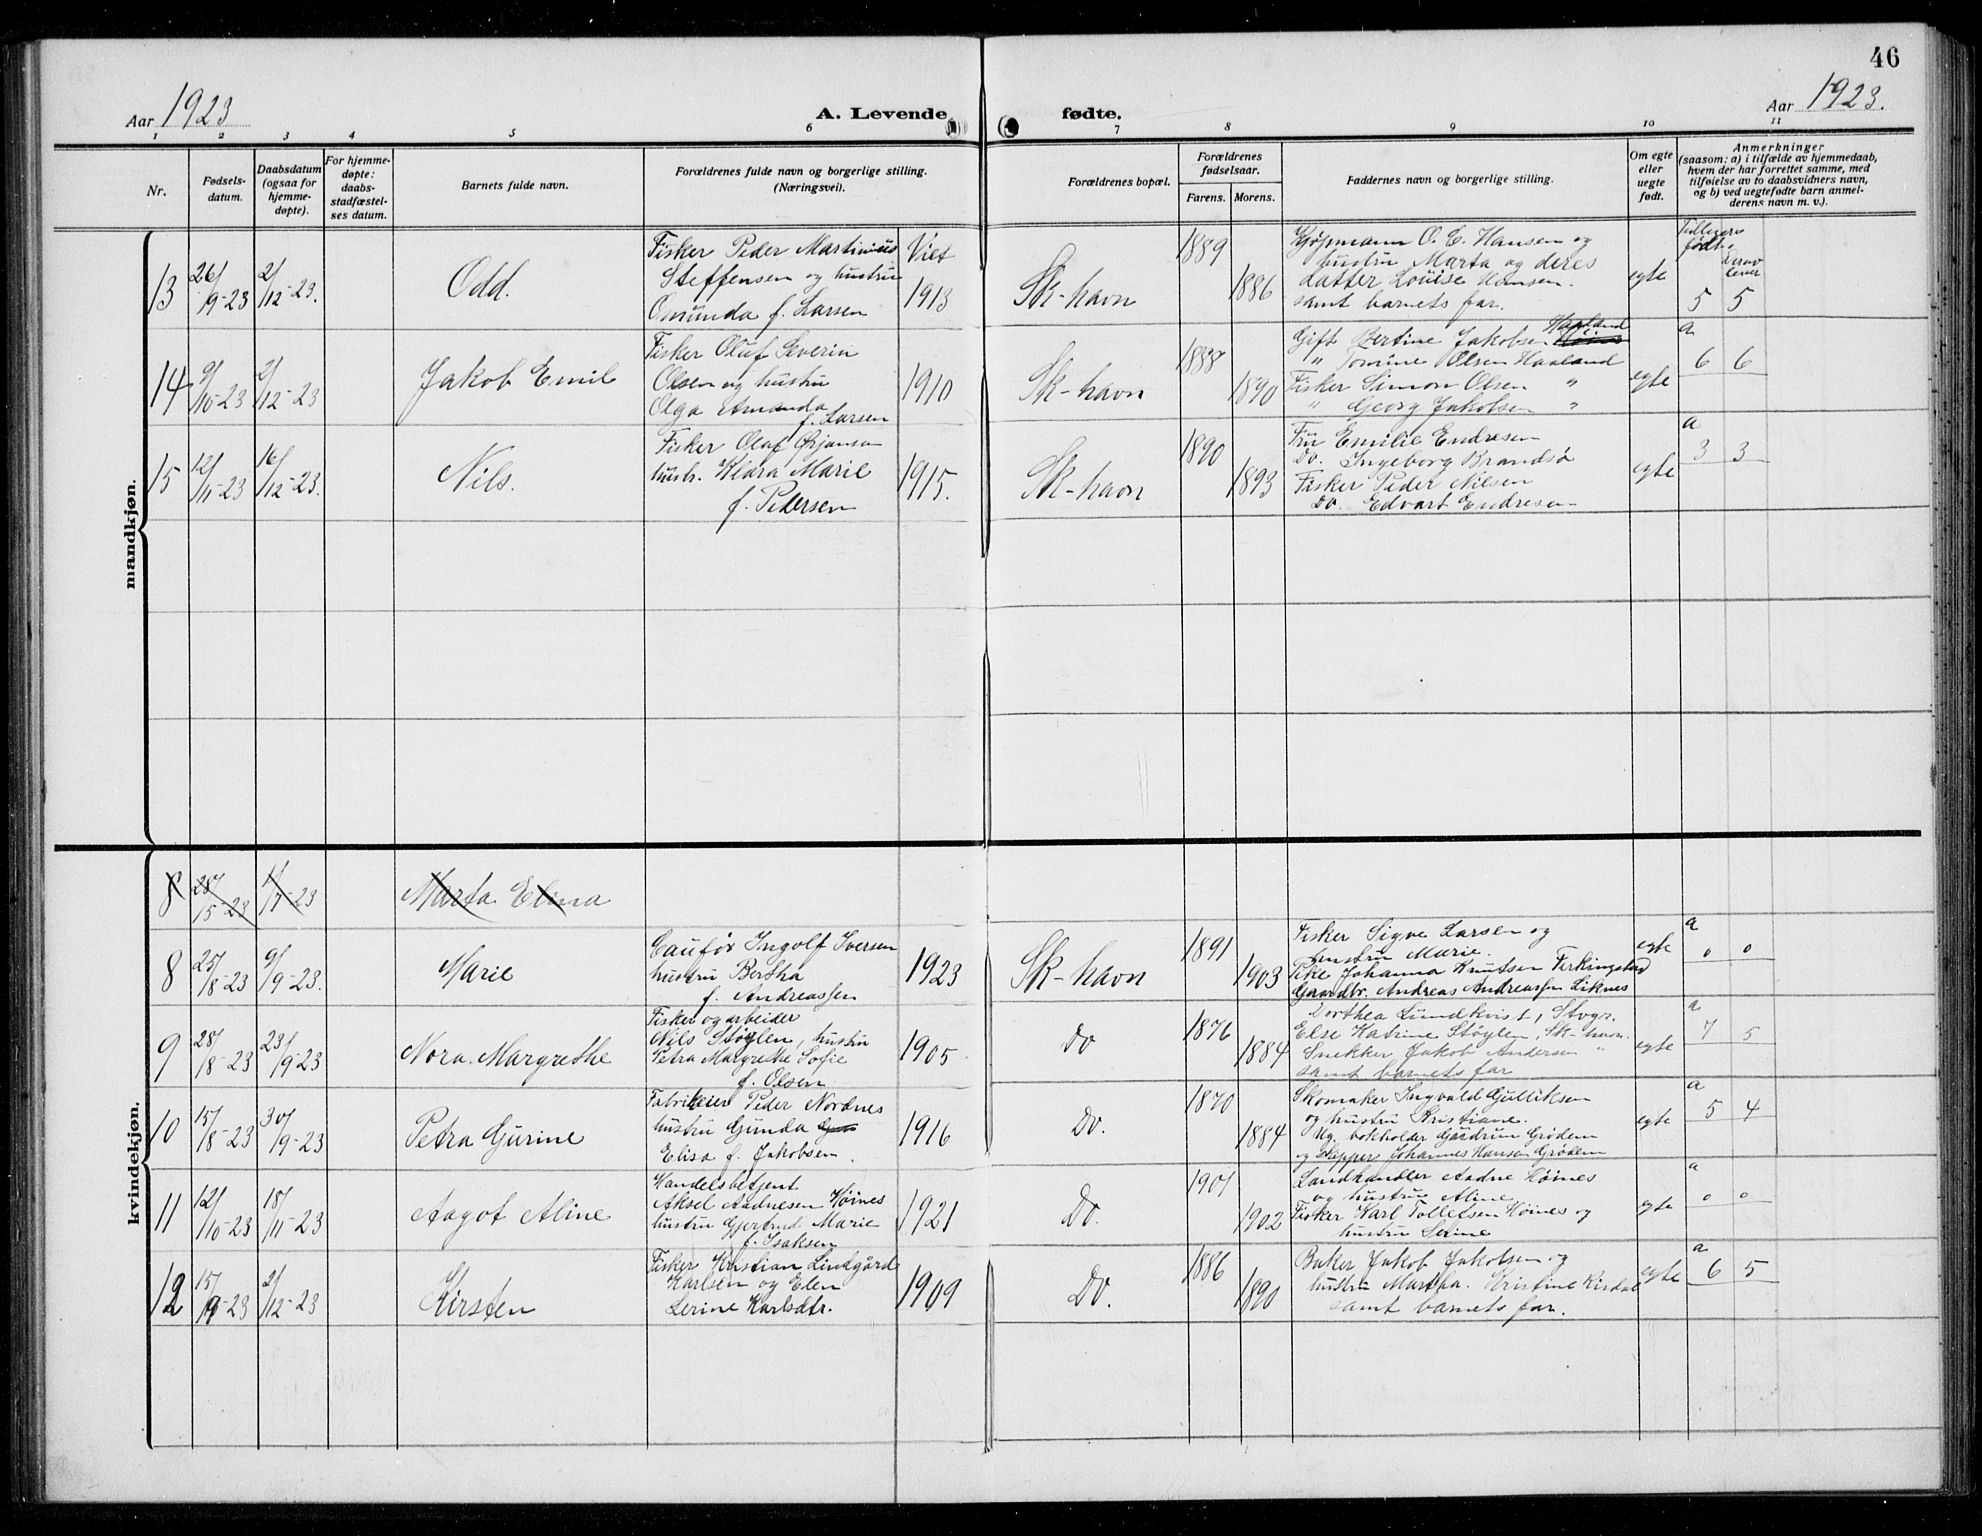 46
Aar 1923
A. Levende fødte.
Aar 1923.
1 2 3 4 5 6 7 8 9 10 11
Nr.
Fødsels-
datum.
Daabsdatum
(ogsaa for
hjemme-
døpte).
For hjemme-
døpte:
daabs-
stadfæstel-
ses datum.
Barnets fulde navn.
Forældrenes fulde navn og borgerlige stilling.
(Næringsvei).
Forældrenes bopæl.
Forældrenes
fødselsaar.
Farens. Morens.
Faddernes navn og borgerlige stilling.
Om egte
eller
uegte
født.
Anmerkninger
(saasom: a) i tilfælde av hjemmedaab,
hvem der har forrettet samme, med
tilføielse av to daabsvidners navn,
og b) ved uegtefødte barn anmel-
derens navn m. v.).
mandkjøn.
13
26/9-23
2/12-23.
Odd.
Fisker Peder Martinius
Steffensen og hustru
Omunda f. Larsen
Viet
1913
Sk-havn
1889
1886
Kjøpmann O. E. Hansen og
hustru Marta og deres
datter Louise Hansen.
samt barnets far.
egte
Tidligere
født
herav
lever
5 5
14
9/10-23
2/12-23
Jakob Emil
Fisker Oluf Severin
Olsen og hustru
Olga Amanda
f. Larsen
1910
Sk-havn
1888
1890
Gift Bertine Jakobsen Haaland
" Tomine Olsen Haaland
Fisker Simon Olsen "
" Georg Jakobsen "
egte
a
6 6
15
12/11-23
16/12-23.
Nils.
Fisker Olaf Ørjansen
hustr. Klara Marie
f. Pedersen
1915.
Sk-havn
1890
1893
Fru Emilie Endresen
Do. Ingeborg Brandsø
Fisker Peder Nilsen
Do. Edvart Endresen
egte
a
3 3
kvindekjøn.
8
28/5-23
1/7-23
Marta Elina
8
25/8-23
9/9-23.
Marie
Caufør Ingolf Iversen
hustru Bertha
f. Andreassen
1923
Sk-havn
1891
1903
Fisker Sigve Larsen og
hustru Marie.
Pike Johanna Knutsen Ferkingstad
Gaardbr. Andreas Andreassen Liknes
egte
a
0 0
9
28/8-23
23/9-23
Nora Margrethe
Fisker og arbeider
Nils Støylen, hustru
Petra Margrethe Sofie
f. Olsen
1905
Do
1876
1884
Dorthea Lundkvist, Stvgr.
Else Katrine Støylen, Sk-havn.
Snekker Jakob Andersen "
samt barnets far
egte
a
7 5
10
15/8-23
30/9-23
Petra Gurine
Fabrikeier Peder Nordnes
hustru Gunda
Elisa f. Jakobsen.
1916
Do.
1870
1884
Skomaker Ingvald Gulliksen
og hustru Kristiane.
Ug. bokholder Gudrun Grødem
og skipper Johannes Hansen Grødem
egte
a
5 4
11
12/10-23
18/11-23
Aagot Aline
Handelsbetjent
Aksel Aadnesen Høines
hustru Gjertrud Marie
f. Isaksen
1921
Do.
1901
1902
Landhandler Aadne Høines
og hustru Aline
Fisker Karl Tollefsen Høines og
hustru Serine
egte
a
0 0
12
15/9-23
2/12-23
Kirsten
Fisker Kristian Lindgård
Karlsen og Elen
Serine Karlsdtr.
1909
Do.
1886
1890
Baker Jakob Jakobsen og
hustru Martha. Kristine
samt barnets far.
egte
a
6 5